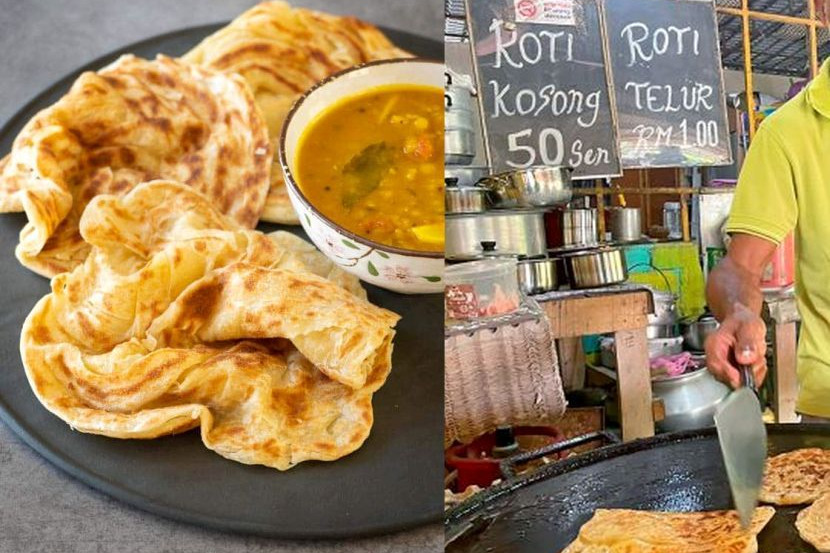 ROTI
KOSONG
50 Sen
ROTI
TELUR
RM 1.00